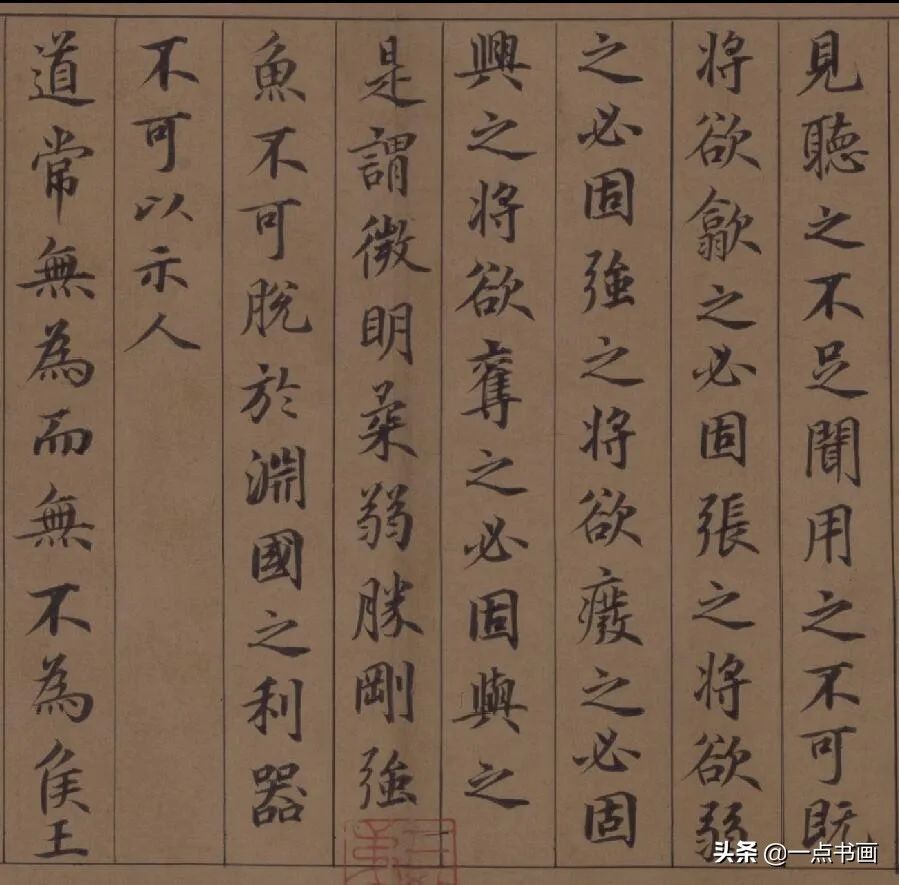 見聽之不足聞用之不可既
將欲歙之必固張之將欲弱
之必固強之將欲癈之必固
興之將欲奪之必固與之
是謂微明柔弱勝剛強
魚不可脫於淵國之利器
不可以示人
道常無為而無不為侯王
头条 @一点书画